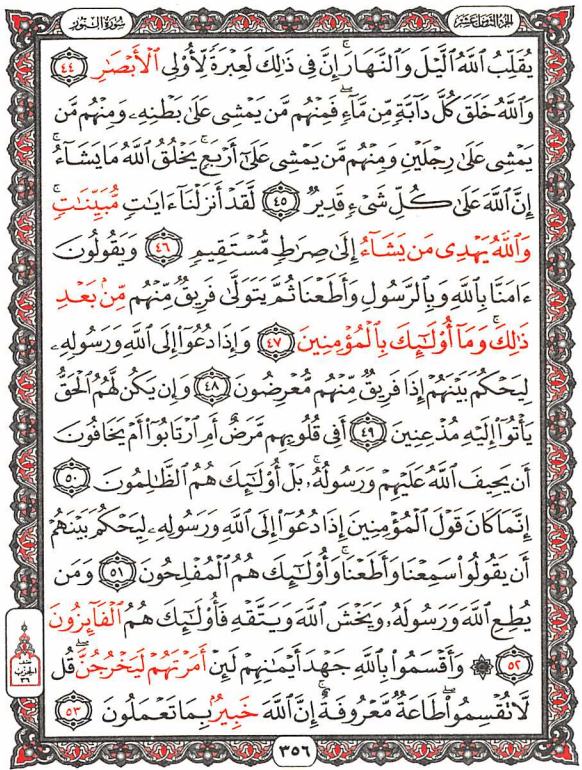 الجزء الثامن عشر
سورة النور
يُقَلِّبُ ٱللَّهُ ٱلَّيۡلَ وَٱلنَّهَارَۚ إِنَّ فِي ذَٰلِكَ لَعِبۡرَةٗ لِّأُوْلِي ٱلۡأَبۡصَٰرِ ٤٤
وَٱللَّهُ خَلَقَ كُلَّ دَآبَّةٖ مِّن مَّآءٖۖ فَمِنۡهُم مَّن يَمۡشِي عَلَىٰ بَطۡنِهِۦ وَمِنۡهُم مَّن
يَمۡشِي عَلَىٰ رِجۡلَيۡنِ وَمِنۡهُم مَّن يَمۡشِي عَلَىٰٓ أَرۡبَعٖۚ يَخۡلُقُ ٱللَّهُ مَا يَشَآءُۚ
إِنَّ ٱللَّهَ عَلَىٰ كُلِّ شَيۡءٖ قَدِيرٞ ٤٥ لَّقَدۡ أَنزَلۡنَآ ءَايَٰتٖ مُّبَيِّنَٰتٖۚ
وَٱللَّهُ يَهۡدِي مَن يَشَآءُ إِلَىٰ صِرَٰطٖ مُّسۡتَقِيمٖ ٤٦ وَيَقُولُونَ
ءَامَنَّا بِٱللَّهِ وَبِٱلرَّسُولِ وَأَطَعۡنَا ثُمَّ يَتَوَلَّىٰ فَرِيقٞ مِّنۡهُم مِّنۢ بَعۡدِ
ذَٰلِكَۚ وَمَآ أُوْلَٰٓئِكَ بِٱلۡمُؤۡمِنِينَ ٤٧ وَإِذَا دُعُوٓاْ إِلَى ٱللَّهِ وَرَسُولِهِۦ
لِيَحۡكُمَ بَيۡنَهُمۡ إِذَا فَرِيقٞ مِّنۡهُم مُّعۡرِضُونَ ٤٨ وَإِن يَكُن لَّهُمُ ٱلۡحَقُّ
يَأۡتُوٓاْ إِلَيۡهِ مُذۡعِنِينَ ٤٩ أَفِي قُلُوبِهِم مَّرَضٌ أَمِ ٱرۡتَابُوٓاْ أَمۡ يَخَافُونَ
أَن يَحِيفَ ٱللَّهُ عَلَيۡهِمۡ وَرَسُولُهُۥۚ بَلۡ أُوْلَٰٓئِكَ هُمُ ٱلظَّٰلِمُونَ ٥٠
إِنَّمَا كَانَ قَوۡلَ ٱلۡمُؤۡمِنِينَ إِذَا دُعُوٓاْ إِلَى ٱللَّهِ وَرَسُولِهِۦ لِيَحۡكُمَ بَيۡنَهُمۡ
أَن يَقُولُواْ سَمِعۡنَا وَأَطَعۡنَاۚ وَأُوْلَٰٓئِكَ هُمُ ٱلۡمُفۡلِحُونَ ٥١ وَمَن
يُطِعِ ٱللَّهَ وَرَسُولَهُۥ وَيَخۡشَ ٱللَّهَ وَيَتَّقۡهِ فَأُوْلَٰٓئِكَ هُمُ ٱلۡفَآئِزُونَ
٥٢ ۞ وَأَقۡسَمُواْ بِٱللَّهِ جَهۡدَ أَيۡمَٰنِهِمۡ لَئِنۡ أَمَرۡتَهُمۡ لَيَخۡرُجُنَّۖ قُل
لَّا تُقۡسِمُواْۖ طَاعَةٞ مَّعۡرُوفَةٌۚ إِنَّ ٱللَّهَ خَبِيرُۢ بِمَا تَعۡمَلُونَ ٥٣
الحزب
٣٦
٣٥٦